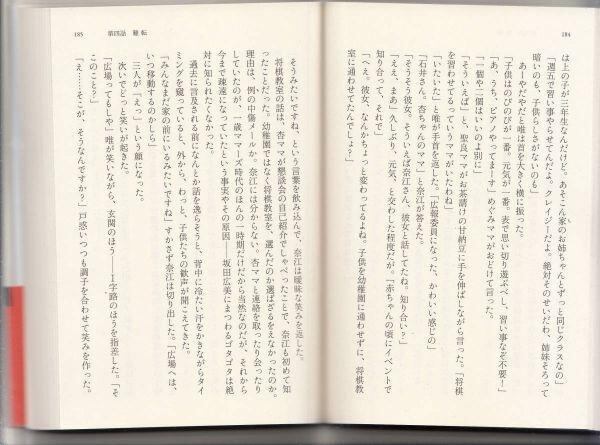 184
は上の子が三年生なんだけど。あそこん家のお姉ちゃんとずっと同じクラスなの」
「週五で習い事やらせてんだよ。クレイジーだよ。絶対そのせいだわ、姉妹そろって
暗いのも、子供らしさがないのも」
あーやだやだと唯は首を大きく横に振った。
「子供はのびのびが一番。元気が一番。表で思い切り遊ぶべし、習い事など不要！」
「あ、うち、ピアノやってまーす」めぐみママがおどけて言った。
「一個や二個はいいのよ別に」
「そういえば」と、聖良ママがお茶請けの甘納豆に手を伸ばしながら言った。「将棋
を習わせてるっていうママがいたわね」
「いたいた」と唯が手首を返した。「広報委員になった、かわいい感じの」
「石井さん。杏ちゃんのママ」と奈江が答えた。
「そうそう彼女。そういえば奈江さん、彼女と話してたね。知り合い？」
「ええ、まあ」久しぶり、元気、と交わした程度だが。「赤ちゃんの頃にイベントで
知り合って、それで」
「へえ。彼女、なんかちょっと変わってるよね。子供を幼稚園に通わせずに、将棋教
室に通わせてたんでしょ？」
185 第四話 軽転
そうみたいですね、という言葉を飲み込んで、奈江は曖昧な笑みを返した。
将棋教室の話は、杏ママが懇談会の自己紹介でしゃべったことで、奈江も初めて知
ったことだった。幼稚園ではなく将棋教室を、選んだのか選ばざるをえなかったのか。
理由は、例の中傷メールか。奈江には分からない。杏ママと連絡を取ったり会ったり
していたのが、一歳マルーズ時代のほんの一時期だけだから当然なのだが、それから
今まで疎遠になっていたという事実やその原因――坂田広美にまつわるゴタゴタは絶
対に知られたくなかった。
過去に言及される前になんとか話を逸らそうと、背中に冷たい汗をかきながらタイ
ミングを窺っていると、外から、わっと、子供たちの歓声が聞こえてきた。
「みんなまだ家の前にいるみたいですね」すかさず奈江は切り出した。「広場へは、
いつ移動するのかしら」
三人が「えっ」という顔になった。
次いでどっと笑いが起きた。
「広場ってもしや」唯が笑いながら、玄関のほう――Ｉ字路のほうを指差した。「そ
このこと？」
「え……そこが、そうなんですか？」戸惑いつつも調子を合わせて笑みを作った。